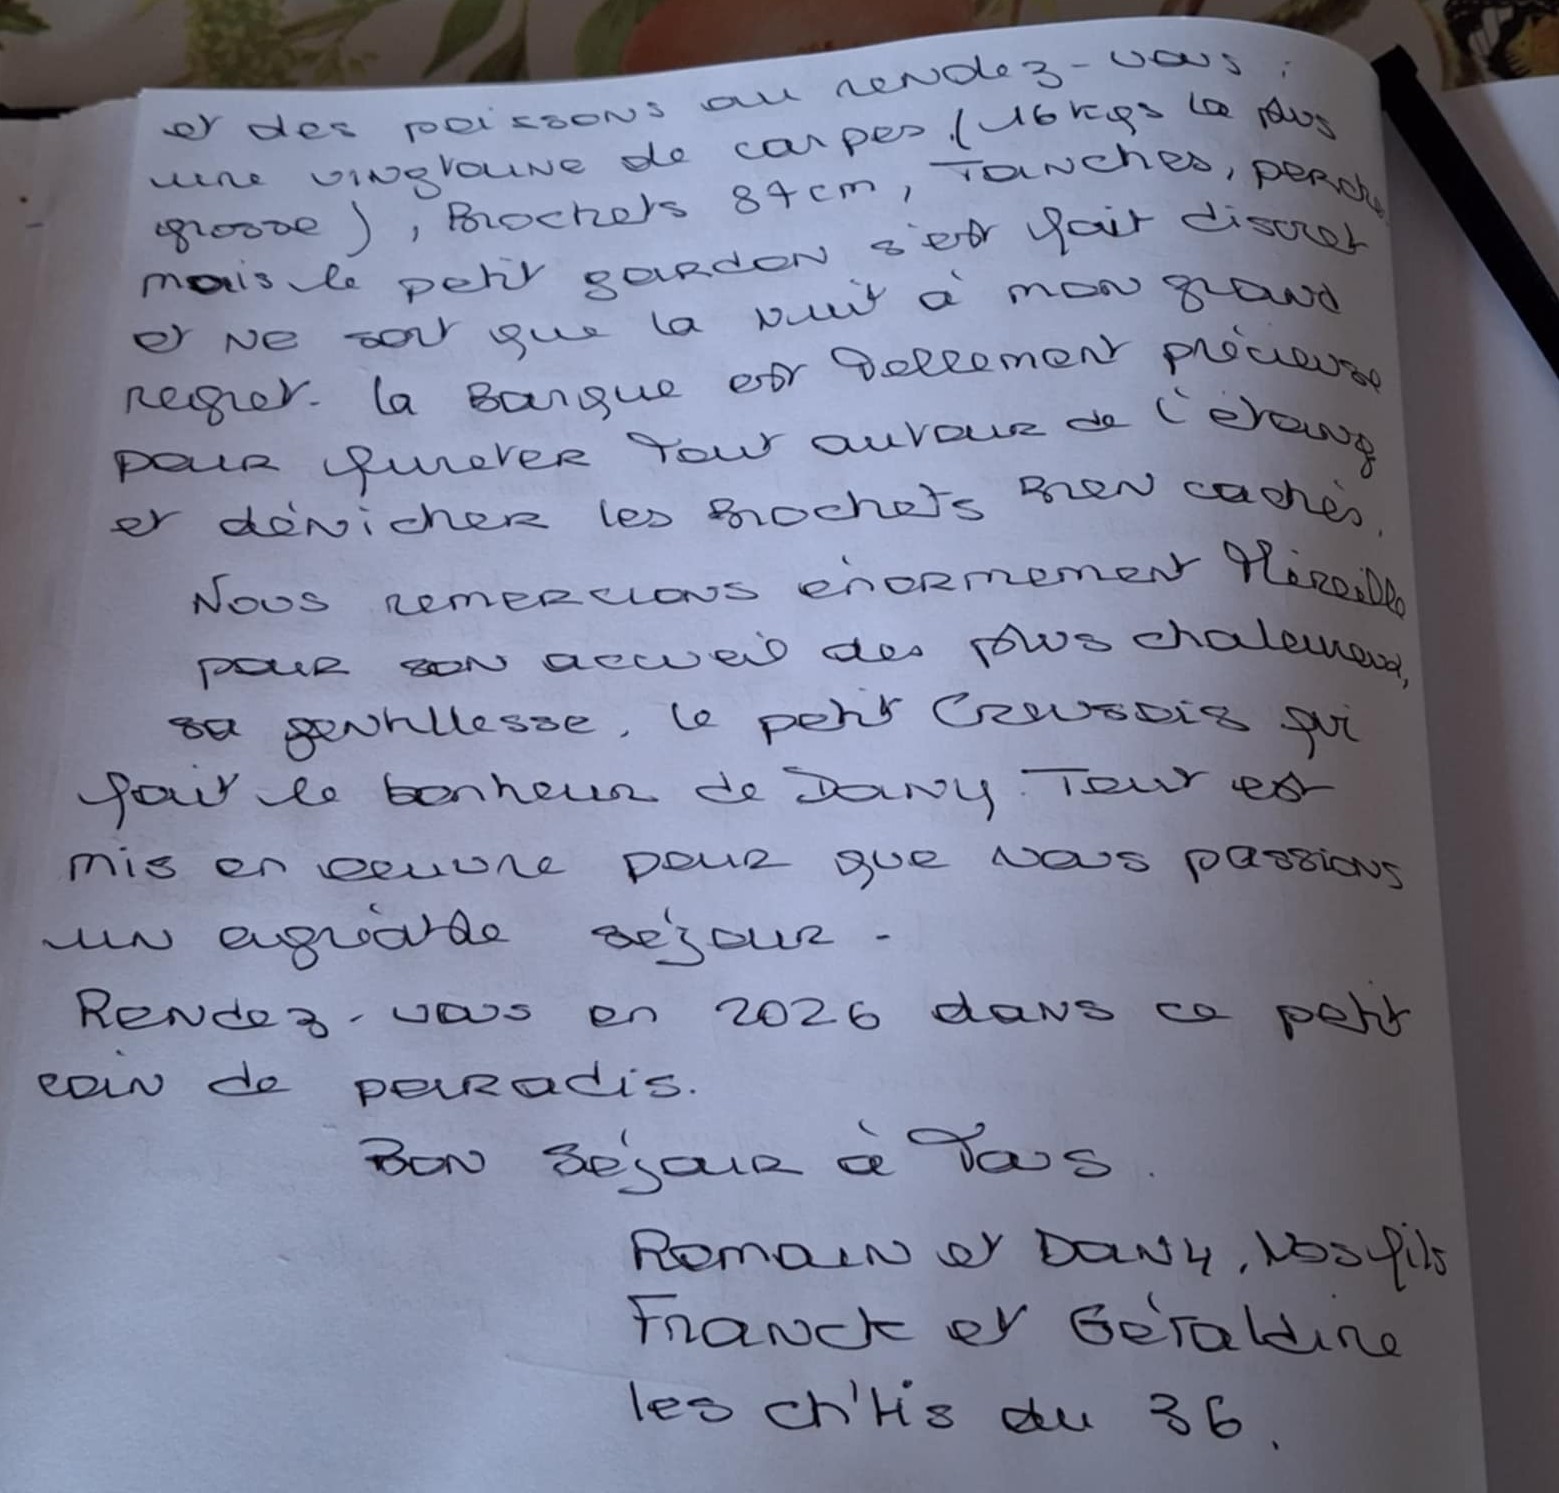 et des poissons au rendez-vous :
une vingtaine de carpes (16 kgs la plus
grosse), Brochets 87cm, Tanches, perche
mais le petit gardon s'est fait discret
et ne sort que la nuit à mon grand
regret. la Barque est tellement précieuse
pour fureter tout autour de l'étang
et dénicher les Brochets Bien cachés.
Nous remercions énormement Mireille
pour son accueil des plus chaleureux,
sa gentillesse, le petit Creusois qui
fait le bonheur de Dany. Tout est
mis en oeuvre pour que nous passions
un agréable séjour -
Rendez-vous en 2026 dans ce petit
coin de paradis.
Bon séjour à Tous.
Romain et Dany, Nos fils
Franck et Géraldine
les ch'tis du 36.